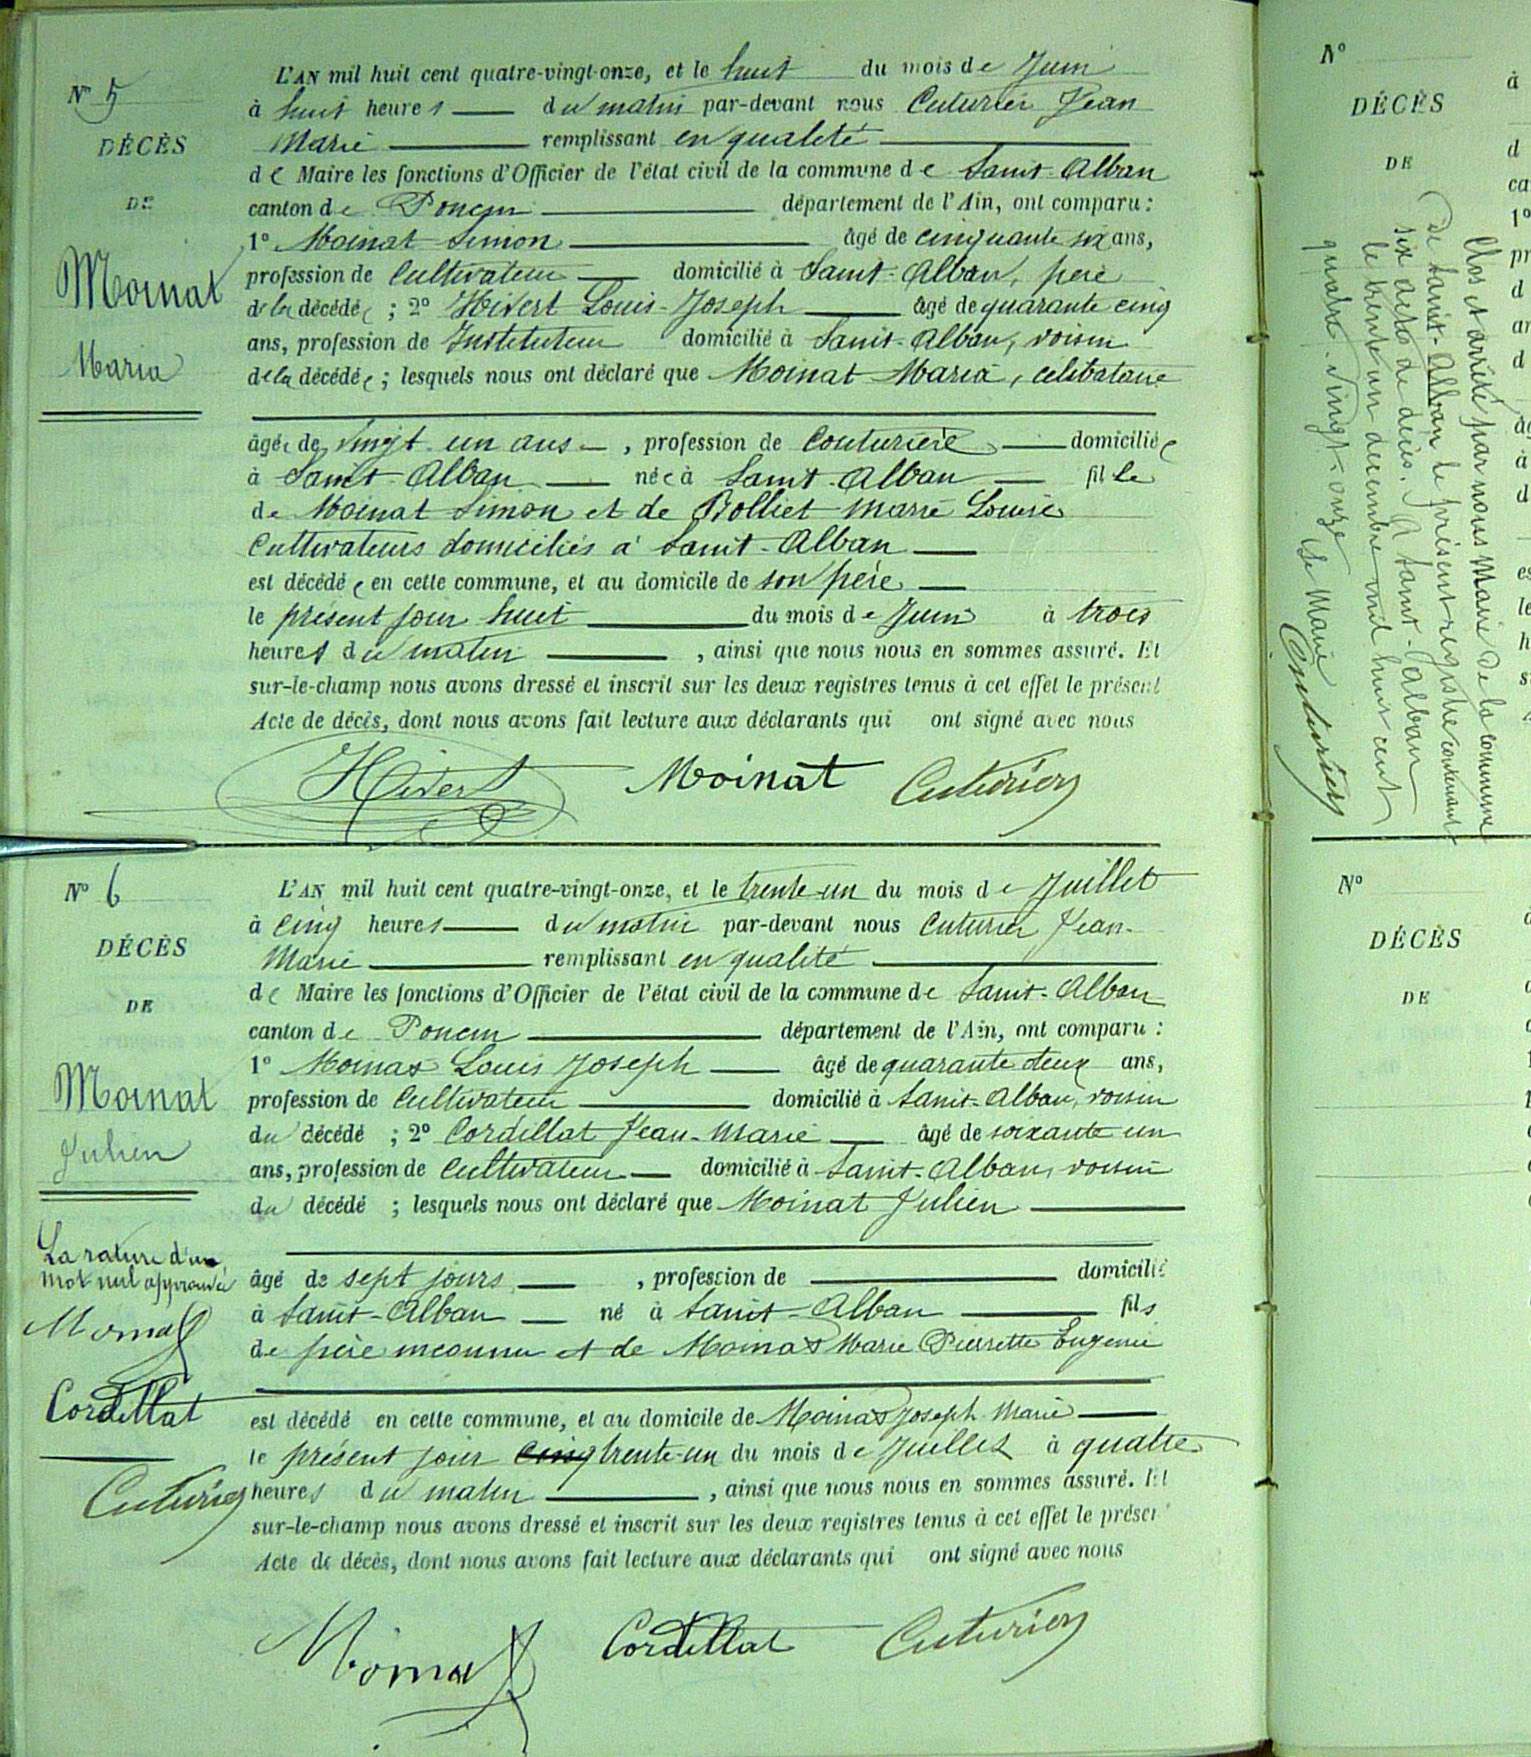 N° 5
DÉCÈS
DE
Moinat
Maria
L'AN mil huit cent quatre-vingt-onze, et le huit du mois de Juin
à huit heures du matin par-devant nous Cuturier Jean
Marie remplissant en qualité
de Maire les fonctions d'Officier de l'état civil de la commune de Saint-Alban
canton de Poncin département de l'Ain, ont comparu :
1° Moinat Simon âgé de cinquante six ans,
profession de Cultivateur domicilié à Saint-Alban, père
de la décédée ; 2° Hivert Louis-Joseph âgé de quarante cinq
ans, profession de Instituteur domicilié à Saint-Alban, voisin
de la décédée ; lesquels nous ont déclaré que Moinat Maria, célibataire
âgée de vingt un ans, profession de Couturière domiciliée
à Saint-Alban née à Saint-Alban fille
de Moinat Simon et de Bolliet Marie Louise
Cultivateurs domiciliés à Saint-Alban
est décédée en cette commune, et au domicile de son père
le présent jour huit du mois de Juin à trois
heures du matin, ainsi que nous nous en sommes assuré. Et
sur-le-champ nous avons dressé et inscrit sur les deux registres tenus à cet effet le présent
Acte de décès, dont nous avons fait lecture aux déclarants qui ont signé avec nous
Hivert Moinat Cuturier
N° 6
DÉCÈS
DE
Moinat
Julien
La rature d'un
mot nul approuvée
Moinat
Cordillat
Cuturier
L'AN mil huit cent quatre-vingt-onze, et le trente-un du mois de Juillet
à cinq heures du matin par-devant nous Cuturier Jean-
Marie remplissant en qualité
de Maire les fonctions d'Officier de l'état civil de la commune de Saint-Alban
canton de Poncin département de l'Ain, ont comparu :
1° Moinat Louis Joseph âgé de quarante deux ans,
profession de Cultivateur domicilié à Saint-Alban, voisin
du décédé ; 2° Cordillat Jean-Marie âgé de soixante un
ans, profession de Cultivateur domicilié à Saint-Alban, voisin
du décédé ; lesquels nous ont déclaré que Moinat Julien
âgé de sept jours, profession de domicilié
à Saint-Alban né à Saint-Alban fils
de père inconnu et de Moinat Marie Pierrette Eugénie
est décédé en cette commune, et au domicile de Moinat Joseph Marie
le présent jour cinq trente-un du mois de Juillet à quatre
heures du matin, ainsi que nous nous en sommes assuré. Et
sur-le-champ nous avons dressé et inscrit sur les deux registres tenus à cet effet le présen
Acte de décès, dont nous avons fait lecture aux déclarants qui ont signé avec nous
Moinat Cordillat Cuturier
N°
DÉCÈS
DE
Clos et arrêté par nous Maire de la commune
de Saint-Alban le présent registre contenant
six actes de décès. A Saint-Alban
le trente un décembre mil huit cent
quatre-vingt-onze
Le Maire
Cuturier
N°
DÉCÈS
DE